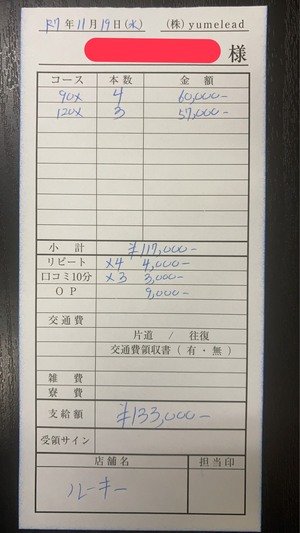 R7年11月19日(水) (株)yumelead
様
コース 本数 金額
90× 4 60,000-
120× 3 57,000-
小計 ¥117,000-
リピート ×4 4,000-
口コミ10分 ×3 3,000-
OP 9,000-
交通費
片道 / 往復
交通費領収書(有・無)
雑費
寮費
支給額 ¥133,000-
受領サイン
店舗名 担当印
ルーキー